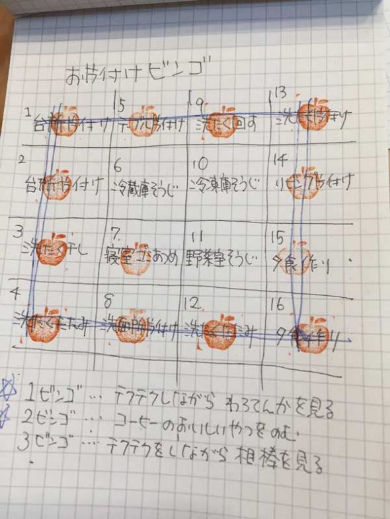 お片付けビンゴ
1 5 9 13
台所片付け テーブル片付け 洗たく回す 洗たく片付け
2 6 10 14
台所片付け 冷蔵庫そうじ 冷凍庫そうじ リビング片付け
3 7 11 15
洗たく干し 寝室ゴミあつめ 野菜室そうじ 夕食作り
4 8 12 16
洗たくたたみ 洗面所片付け 洗たくたたみ 夕食作り
1ビンゴ… テクテクしながら わろてんかを見る
2ビンゴ… コーヒーのおいしいやつをのむ
3ビンゴ… テクテクをしながら 相棒を見る